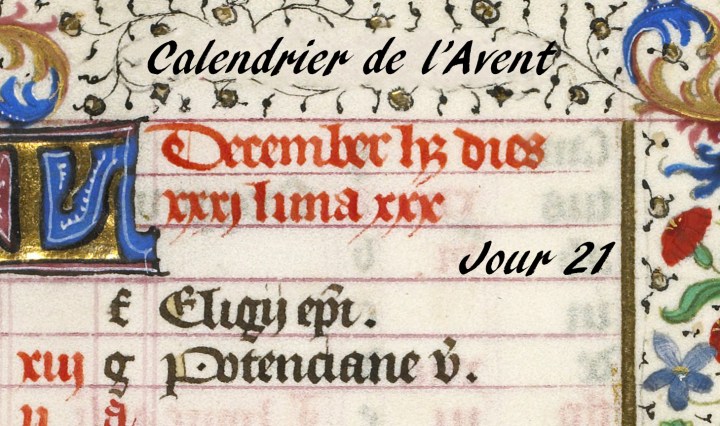 Calendrier de l'Avent
KL
December hʒ dies
xxxj luna xxx
Jour 21
f Eligij ep̄i.
xiij g Potenciane v̄.
ij a